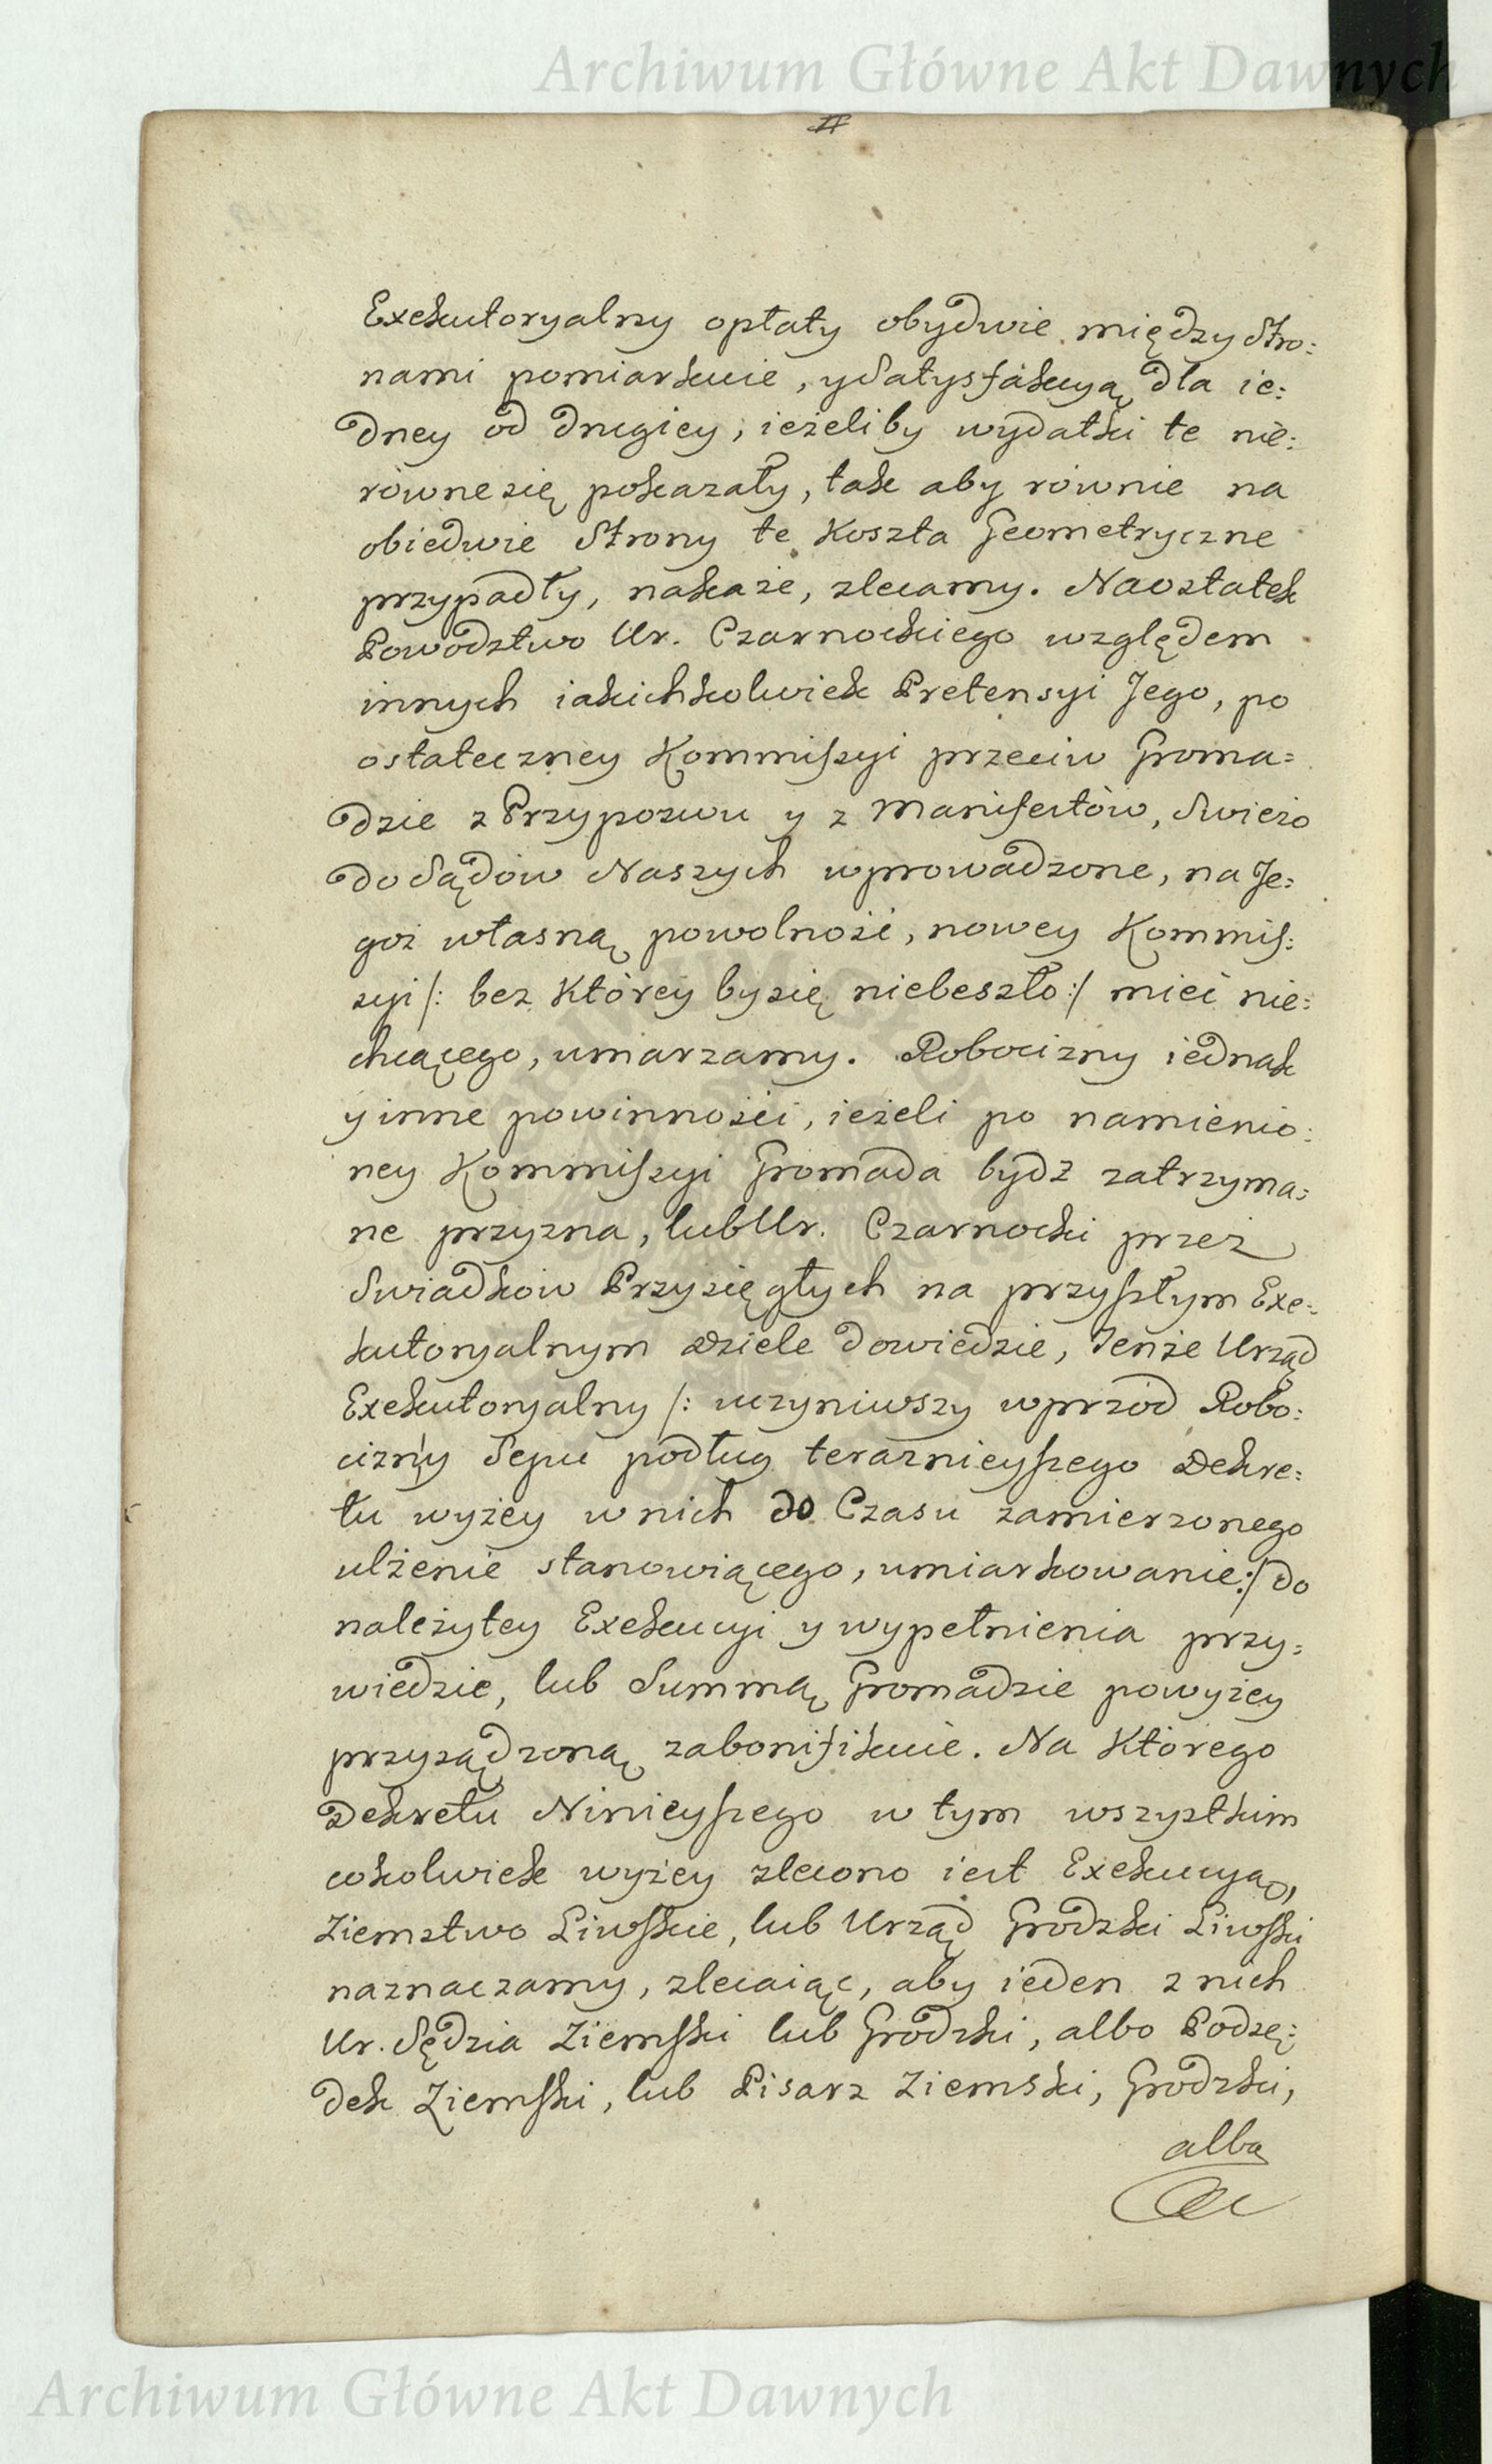 Archiwum Główne Akt Dawnych
Exekutoryalny opłaty obydwie między Stro:
nami pomiarkuie, y Satysfakcyą dla ie:
dney od drugiey, ieżeliby wydatki te nie:
równe się pokazały, tak aby równie na
obiedwie Strony te Koszta Geometryczne
przypadły, nakaże, zlecamy. Naostatek
Powodztwo Ur. Czarnockiego względem
innych iakichkolwiek Pretensyi Jego, po
ostateczney Kommissyi przeciw Groma=
dzie z Przypozwu y z Manifestów, Swieżo
do Sądów Naszych wprowadzone, na Je:
goż własną powolność, nowey Kommis:
syi /: bez Którey by się niebeszło :/ mieć nie:
chcącego, umarzamy. Robocizny iednak
y inne powinności, ieżeli po namienio:
ney Kommissyi Gromada bydź zatrzyma:
ne przyzna, lub Ur. Czarnocki przez
Swiadkow Przysięgłych na przyszłym Exe:
kutoryalnym Dziele dowiedzie, Tenże Urząd
Exekutoryalny /: uczyniwszy wprzód Robo:
cizny Sepu podług teraznieyszego Dekre:
tu wyżey w nich do Czasu zamierzonego
ulżenie stanowiącego, umiarkowanie :/ do
należytey Exekucyi y wypełnienia przy:
wiedzie, lub Summą Gromadzie powyżey
przysądzoną zabonifikuie. Na Którego
Dekretu Ninieyszego w tym wszystkim
cokolwiek wyżey zlecono iest Exekucyą,
Ziemstwo Liwskie, lub Urząd Grodzki Liwski
naznaczamy, zlecaiąc, aby ieden z nich
Ur. Sędzia Ziemski lub Grodzki, albo Podsę:
dek Ziemski, lub Pisarz Ziemski, Grodzki,
albo
Archiwum Główne Akt Dawnych